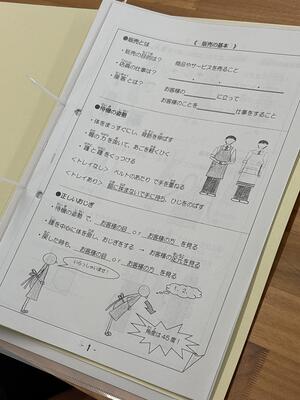 《 販売の基本 》
●販売とは
・販売の目的は? 商品やサービスを売ること
・店員の仕事は?
・接客とは? お客様の に立って
お客様のことを 仕事をすること
●待機の姿勢
・体をまっすぐにし、背筋を伸ばす
・肩の力を抜いて、あごを軽くひく
・踵と踵をくっつける
<トレイなし> ベルトのあたりで手を重ねる
<トレイあり> 脇に挟まないで手に持ち、ひじをのばす
●正しいおじぎ
・待機の姿勢で、お客様の目 or お客様の方 を見る
・腰を中心に体を屈し、おじぎをする → お客様の足元を見る
・戻した時も、お客様の目 or お客様の方 を見る
いらっしゃいませ!
1、2、
角度は45度!
- 1 -